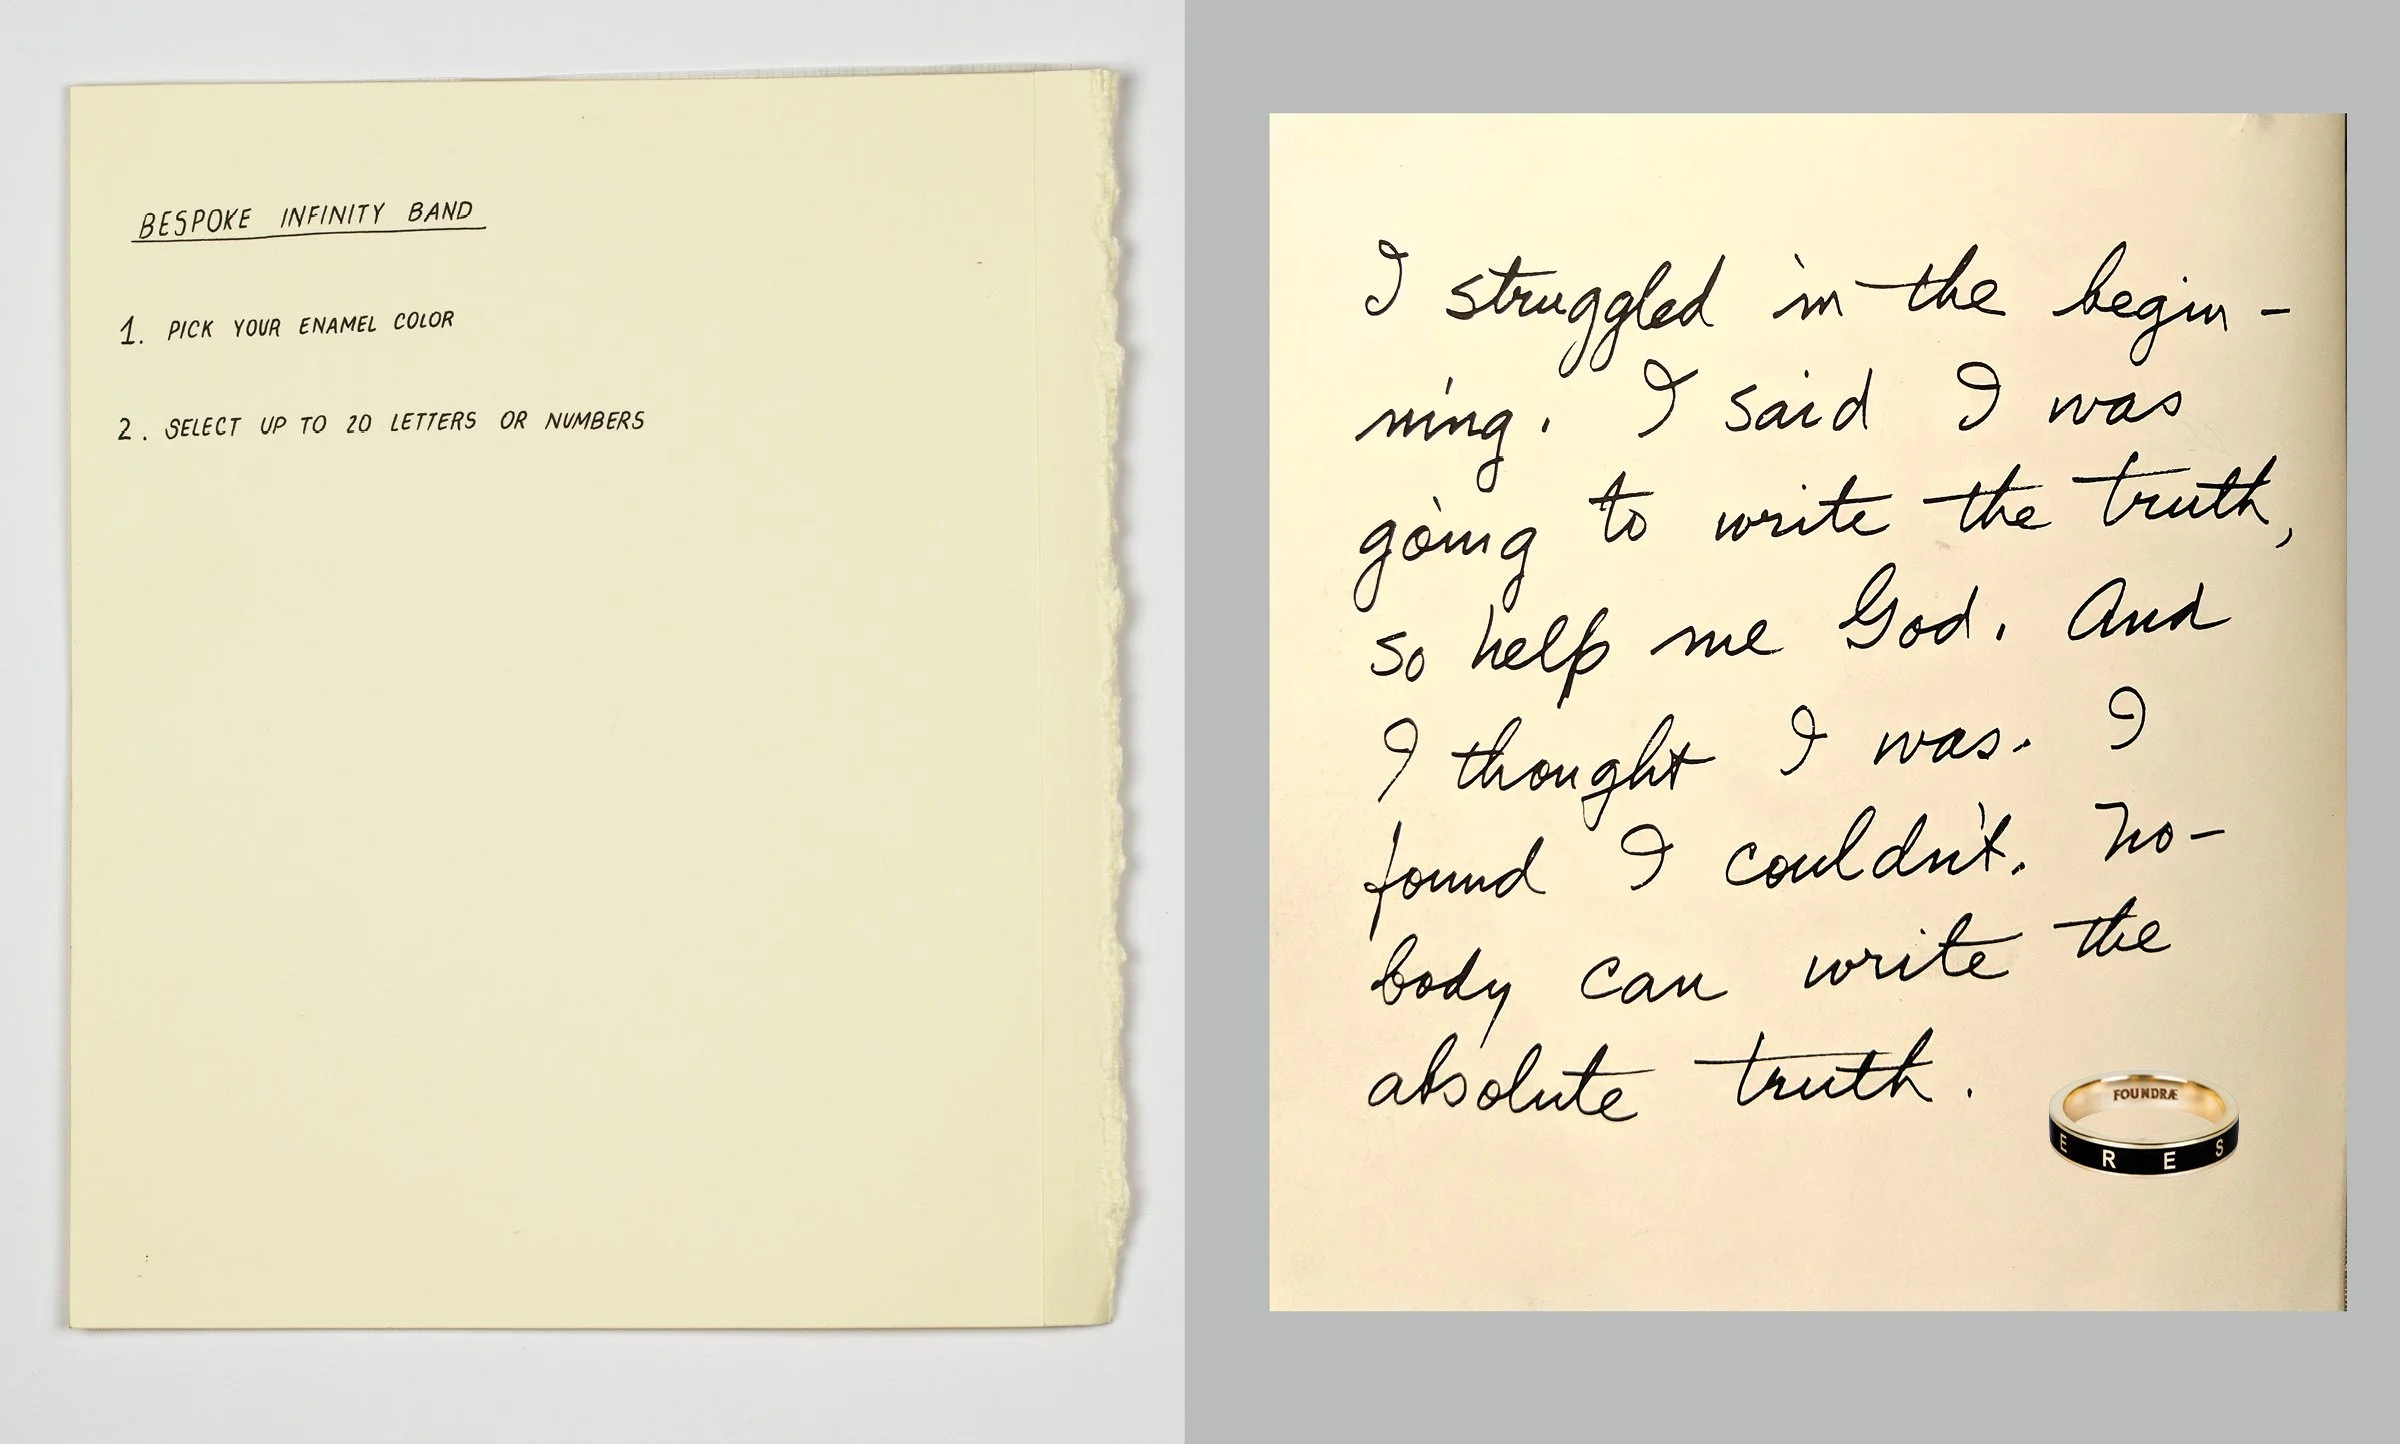 BESPOKE INFINITY BAND
1. PICK YOUR ENAMEL COLOR
2. SELECT UP TO 20 LETTERS OR NUMBERS
I struggled in the begin-
ning. I said I was
going to write the truth,
so help me God. And
I thought I was. I
found I couldn't. No-
body can write the
absolute truth.
FOUNDRÆ
E R E S